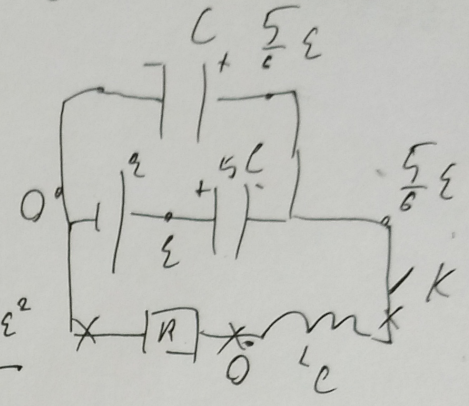 C
- + 5/6 ε
ε + 5C -
5/6 ε
0
ε
K
ε²
R
0
L